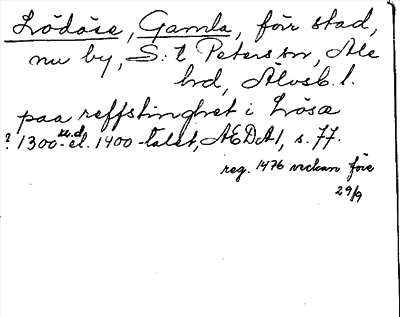 Lödöse, Gamla, förr stad,
nu by, S:t Peters sn, Ale
hd, Älvsb. l.
paa reffstinghet i Lösæ
? 1300- el. 1400-talet, AEDAI, s. 77.
reg. 1476 veckan före
29/9